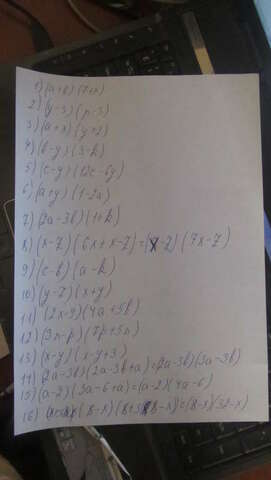 1) (a+b)(7+x)
2) (y-3)(n-3)
3) (a+x)(y+2)
4) (b-y)(3-k)
5) (c-y)(12c-6y)
6) (a+y)(1-2a)
7) (2a-3b)(1+k)
8) (x-7)(6x+x-7)=(x-7)(7x-7)
9) (c-b)(a-k)
10) (y-7)(x+y)
11) (2x-9)(4a+5b)
12) (3n-p)(7p+5n)
13) (x-y)(x-y+3)
14) (2a-3b)(2a-3b+a)=(2a-3b)(3a-3b)
15) (a-2)(3a-6+a)=(a-2)(4a-6)
16) (8-x)(8+3(8-x))=(8-x)(32-x)